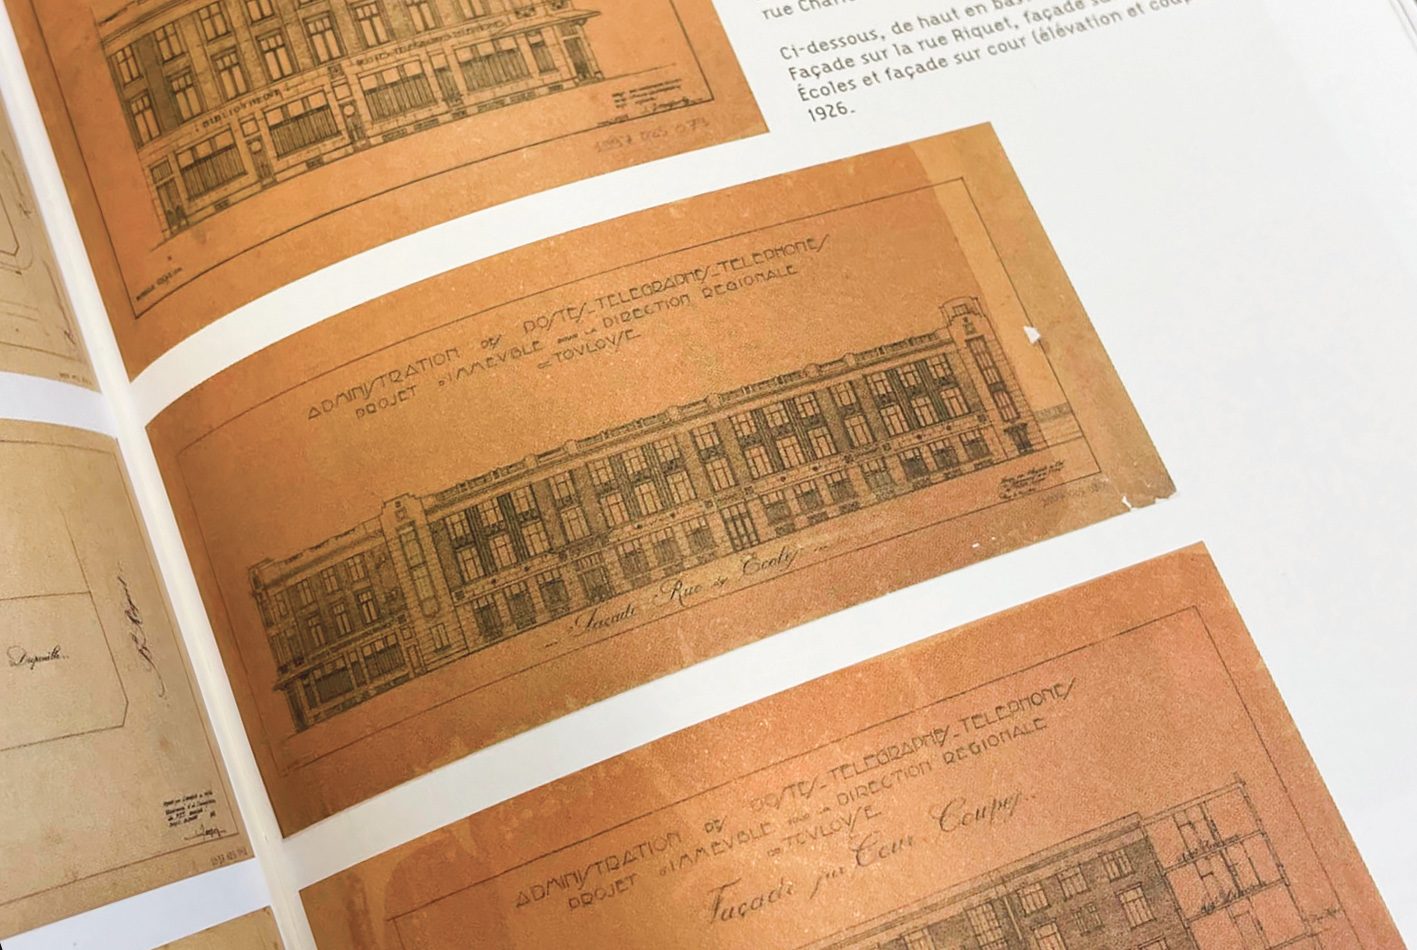 rue Charl
Ci-dessous, de haut en bas
Façade sur la rue Riquet, façade su
Écoles et façade sur cour (élévation et coup
1926.
BIBLIOTHEK
1997 025 073
ADMINISTRATION DES POSTES_TELEGRAPHES_TELEPHONES
PROJET D'IMMEVBLE POUR LA DIRECTION REGIONALE
DE TOVLOVSE
Façade Rue des Ecoles
Disponible
ADMINISTRATION DES POSTES_TELEGRAPHES_TELEPHONES
PROJET D'IMMEVBLE POUR LA DIRECTION REGIONALE
DE TOVLOVSE
Façade sur Cour. Coupes.